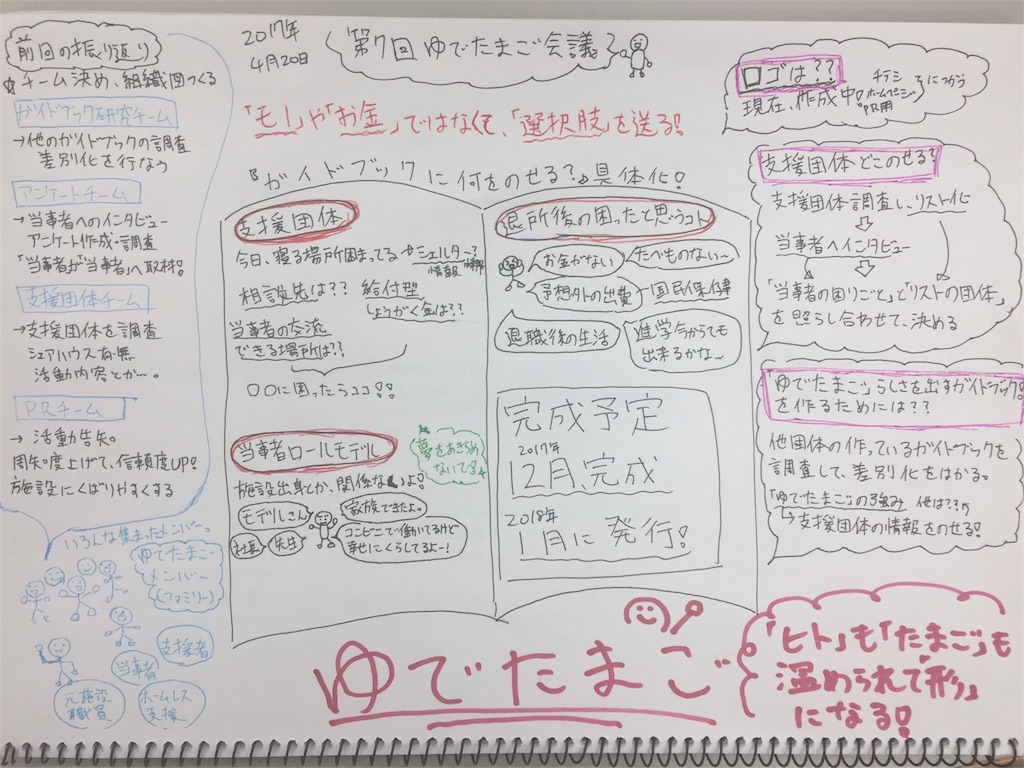 2017年
4月20日
第7回 ゆでたまご会議
前回の振り返り
チーム決め、組織図つくる
ガイドブック研究チーム
→他のガイドブックの調査
差別化を行なう
アンケートチーム
→当事者へのインタビュー
アンケート作成・調査
「当事者が「当事者」へ取材!
支援団体チーム
→支援団体を調査
シェアハウス有・無
活動内容とか〜。
PRチーム
→活動告知。
周知度上げて、信頼度UP!
施設にくばりやすくする
いろんな集まったメンバー。
ゆでたまご
メンバー
(ファミリー)
支援者
当事者
元施設
職員
ホームレス
支援
「モノ」や「お金」ではなくて、「選択肢」を送る!
『ガイドブックに何をのせる?』具体化!
支援団体
今日、寝る場所困まってる
シェルター?
情報
相談先は??
給付型
しょうがく金は??
当事者の交流
できる場所は??
〇〇に困ったらココ!!
当事者ロールモデル
夢をあきらめ
ないで
施設出身とか、関係ないよ!
モデルさん
社長
先生
家族できたよ。
コンビニで働いてるけど
幸せにくらしてるよー!
退所後の困ったと思うコト
お金がない
たべものない〜
予想外の出費
国民保健
退職後の生活
進学今からでも
出来るかな〜
完成予定
2017年
12月、完成
2018年
1月に発行!
ロゴは??
現在、作成中!
チラシ
ホームページ
PR用
につかう
支援団体どこのせる?
支援団体調査し、リスト化
当事者へインタビュー
「当事者の困りごと」と「リストの団体」
を照らし合わせて、決める
「ゆでたまご」らしさを出すガイドブック!
を作るためには??
他団体の作っているガイドブックを
調査して、差別化をはかる。
「ゆでたまご」の強み 他は??
→支援団体の情報をのせる!
ゆでたまご
「ヒト」も「たまご」も
温められて「形」
になる!